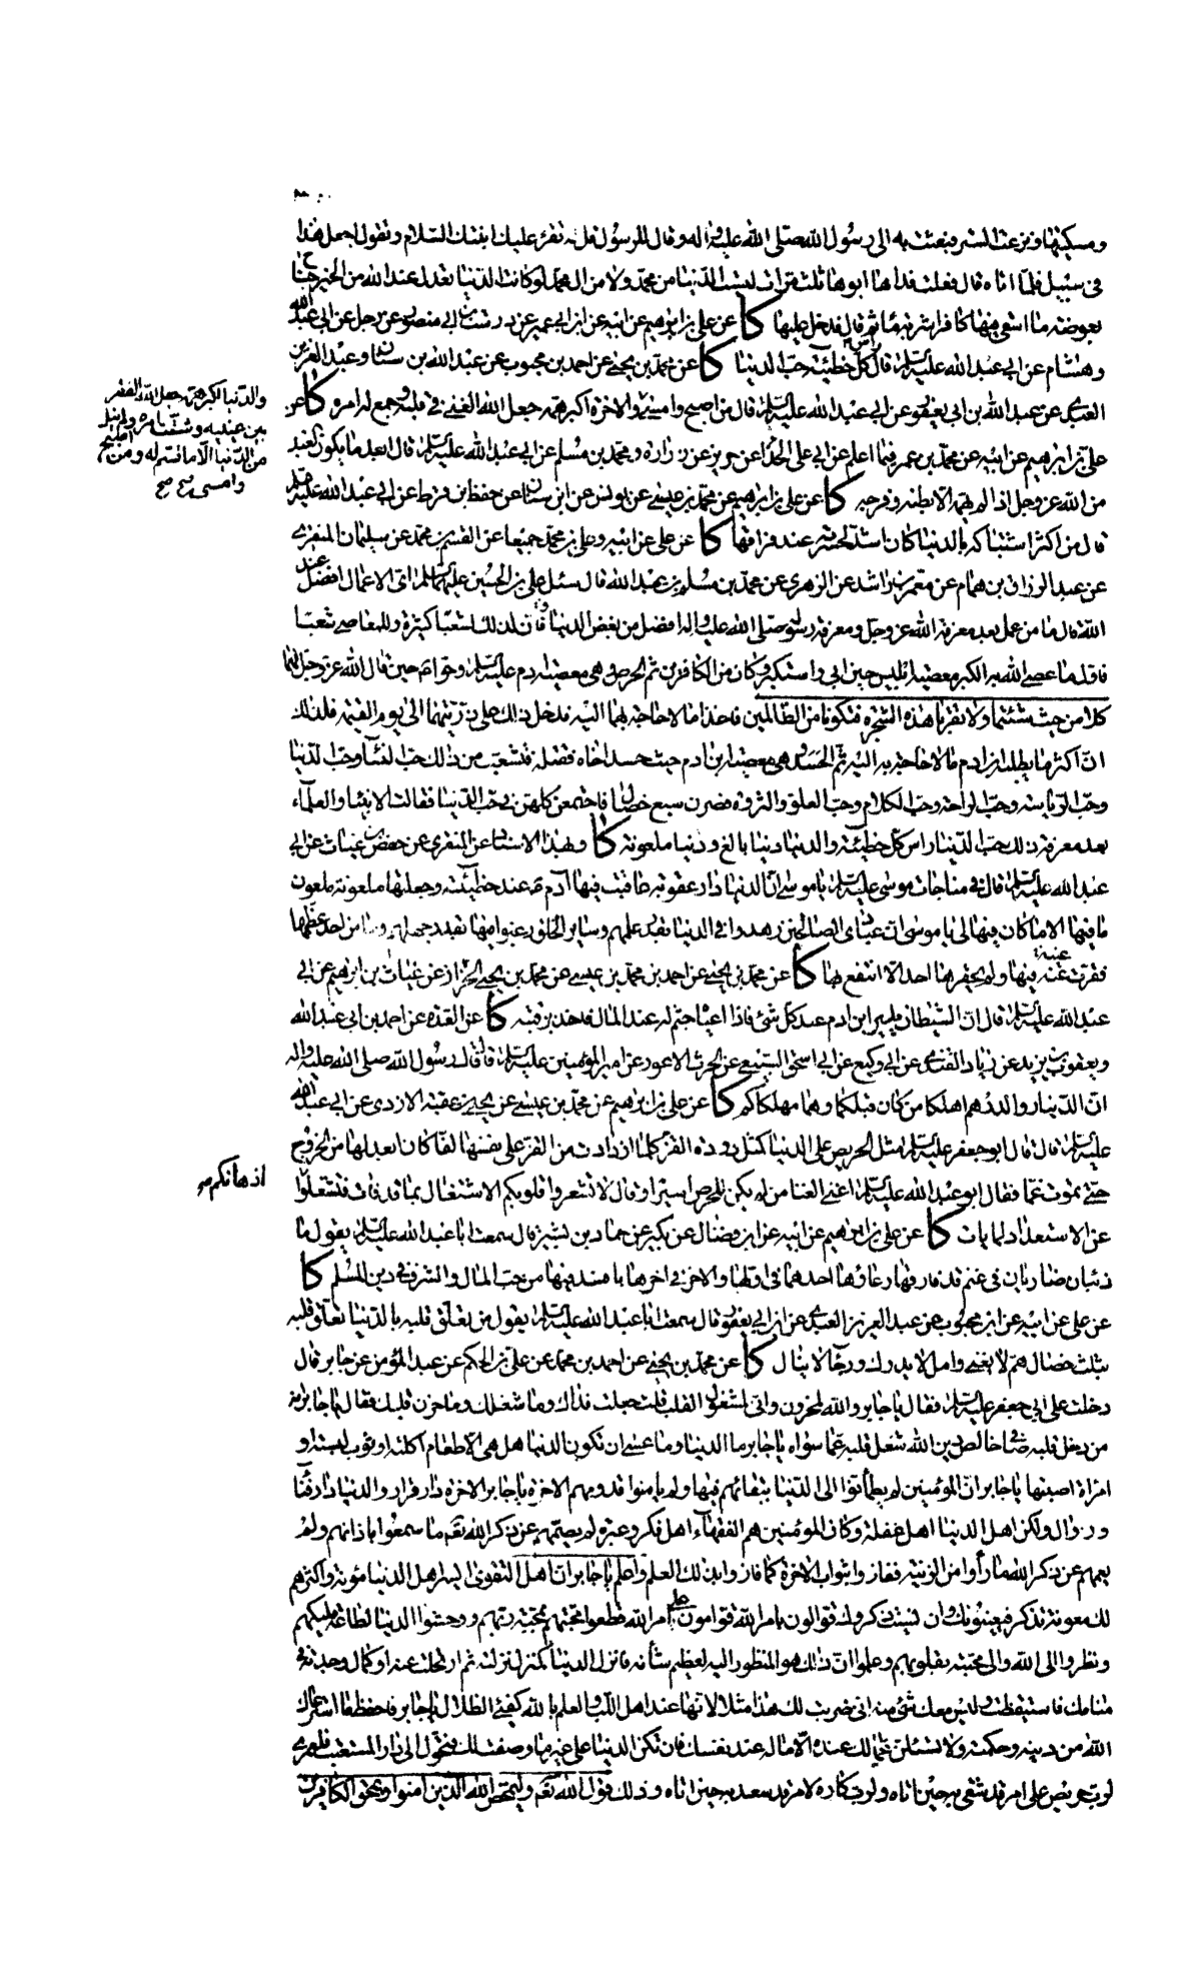 ومسكيتها ونزعت الستر فبعثت به الى رسول الله صلى الله عليه واله وقال للرسول قل له تقرء عليك ابنتك السلام وتقول اجعل هذا
فى سبيل فلما اتاه قال فعلت فداها ابوها ثلث مرات ليست الدنيا من محمد ولا من ال محمد لو كانت الدنيا تعدل عند الله من الخير جناح
بعوضة ما اسقى منها كافرا شربة ماء ثم قام فدخل عليها كا عن على بن ابرهيم عن ابيه عن ابن ابى عمير عن درست بن ابى منصور عن رجل عن ابى عبد الله
وهشام عن ابى عبد الله عليه السلام قال راس كل خطيئة حب الدنيا كا عن محمد بن يحيى عن احمد بن محبوب عن عبد الله بن سنان وعبد العزيز
العبدى عن عبد الله بن ابى يعفور عن ابى عبد الله عليه السلام قال من اصبح وامسى والاخرة اكبر همه جعل الله الغنى فى قلبه وجمع له امره كا عن
على بن ابرهيم عن ابيه عن محمد بن عمر فيما اعلم عن ابى على الحذاء عن حريز عن زرارة ومحمد بن مسلم عن ابى عبد الله عليه السلام قال ابعد ما يكون العبد
من الله عز وجل اذا لم يهمه الا بطنه وفرجه كا عن على بن ابرهيم عن محمد بن عيسى عن يونس عن ابن سنان عن حفص بن قرط عن ابى عبد الله عليه السلام
قال من اكثر اشتباكه بالدنيا كان اشد لحسرته عند فراقها كا عن على عن ابيه وعلى بن محمد جميعا عن القسم بن محمد عن سليمان المنقرى
عن عبد الرزاق بن همام عن معمر بن راشد عن الزهرى عن محمد بن مسلم بن عبيد الله قال سئل على بن الحسين عليهما السلام اى الاعمال افضل عند
الله قال ما من عمل بعد معرفة الله عز وجل ومعرفة رسوله صلى الله عليه واله افضل من بغض الدنيا فان لذلك لشعبا كثيرة وللمعاصى شعبا
فاول ما عصى الله به الكبر معصية ابليس حين ابى واستكبر وكان من الكافرين ثم الحرص وهى معصية ادم عليه السلام وحوا حين قال الله عز وجل لهما
كلا من حيث شئتما ولا تقربا هذه الشجرة فتكونا من الظالمين فاخذا ما لا حاجة بهما اليه فدخل ذلك على ذريتهما الى يوم القيمة فلذلك
ان اكثر ما يطلب ابن ادم ما لا حاجة به اليه ثم الحسد وهى معصية ابن ادم حيث حسد اخاه فقتله فتشعب من ذلك حب النساء وحب الدنيا
وحب الرياسة وحب الراحة وحب الكلام وحب العلو والثروة فصرن سبع خصال فاجتمعن كلهن فى حب الدنيا فقالت الانبياء والعلماء
بعد معرفة ذلك حب الدنيا راس كل خطيئة والدنيا دنيا بلاغ ودنيا ملعونة كا وبهذا الاسناد عن المنقرى عن حفص بن غياث عن ابى
عبد الله عليه السلام قال فى مناجات موسى عليه السلام يا موسى ان الدنيا دار عقوبة عاقبت فيها ادم عند خطيئته وجعلتها ملعونة ملعون
ما فيها الا ما كان فيها لى يا موسى ان عبادى الصالحين زهدوا فى الدنيا بقدر علمهم وسائر الخلق رغبوا فيها بقدر جهلهم وما من احد عظمها
فقرت عينه فيها ولم يحقرها احد الا انتفع بها كا عن محمد بن يحيى عن احمد بن محمد بن عيسى عن محمد بن يحيى الخزاز عن غياث بن ابرهيم عن ابى
عبد الله عليه السلام قال ان الشيطان يدير ابن ادم عند كل شئ فاذا اعياه جثم له عند المال فاخذ برقبته كا عن العدة عن احمد بن ابى عبد الله
ويعقوب بن يزيد عن زياد القندى عن ابى وكيع عن ابى اسحق السبيعى عن الحرث الاعور عن امير المؤمنين عليه السلام قال قال رسول الله صلى الله عليه واله
ان الدينار والدرهم اهلكا من كان قبلكم وهما مهلكاكم كا عن على بن ابرهيم عن محمد بن عيسى عن يحيى بن عقبة الازدى عن ابى عبد الله
عليه السلام قال قال ابو جعفر عليه السلام مثل الحريص على الدنيا كمثل دودة القز كلما ازدادت من القز على نفسها لفا كان ابعد لها من الخروج
حتى تموت غما فقال ابو عبد الله عليه السلام اغنى الغنا من لم يكن للحرص اسيرا وقال لا تشعروا قلوبكم الاشتغال بما قد فات فتشغلوا
عن الاستعداد لما يات كا عن على بن ابرهيم عن ابيه عن ابن فضال عن بكير عن حماد بن بشير قال سمعت ابا عبد الله عليه السلام يقول ما
ذئبان ضاريان فى غنم قد فارقها رعاؤها احدهما فى اولها والاخر فى اخرها بافسد فيها من حب المال والشرف فى دين المسلم كا
عن على عن ابيه عن ابن محبوب عن عبد العزيز العبدى عن ابن ابى يعفور قال سمعت ابا عبد الله عليه السلام يقول من تعلق قلبه بالدنيا تعلق قلبه
بثلث خصال هم لا يغنى وامل لا يدرك ورجاء لا ينال كا عن محمد بن يحيى عن احمد بن محمد عن على بن الحكم عن عبد المؤمن عن جابر قال
دخلت على ابى جعفر عليه السلام فقال يا جابر والله لمحزون وانى لمشغول القلب قلت جعلت فداك وما شغلك وما حزن قلبك فقال يا جابر انه
من دخل قلبه صافى خالص دين الله شغل قلبه عما سواه يا جابر ما الدنيا وما عسى ان تكون الدنيا هل هى الا طعام اكلته او ثوب لبسته او
امراة اصبتها يا جابر ان المؤمنين لم يطمأنوا الى الدنيا ببقائهم فيها ولم يامنوا قدومهم الاخرة يا جابر الاخرة دار قرار والدنيا دار فناء
وزوال ولكن اهل الدنيا اهل غفلة وكان المؤمنين هم الفقهاء اهل فكر وعبرة لم يصمهم عن ذكر الله تعم ما سمعوا باذانهم ولم
يعمهم عن ذكر الله ما رأوا من الزينة ففازوا بثواب الاخرة كما فازوا بذلك العلم واعلم يا جابر ان اهل التقوى ايسر اهل الدنيا مؤنة واكثرهم
لك معونة تذكر فيعينونك وان نسيت ذكروك قوالون بامر الله قوامون على امر الله قطعوا محبتهم بمحبة ربهم ووحشوا الدنيا لطاعة مليكهم
ونظروا الى الله والى محبته بقلوبهم وعلموا ان ذلك هو المنظور اليه لعظيم شأنه فانزل الدنيا كمنزل نزلته ثم ارتحلت عنه او كمال وجدته فى
منامك فاستيقظت وليس معك شئ منه انى ضربت لك هذا مثلا لانها عند اهل اللب والعلم بالله كفئ الظلال يا جابر فاحفظ ما استرعاك
الله من دينه وحكمته ولا تسئلن عما لك عنده الا ما له عند نفسك فان تكن الدنيا على غير ما وصفت لك فتحول الى دار المستعتب فلعمرى
لرب حريص على امر قد شقى به حين اتاه ولرب كاره لامر قد سعد به حين اتاه وذلك قول الله تعم وليمحص الله الذين امنوا ويمحق الكافرين
والدنيا اكبر همه جعل الله الفقر
بين عينيه وشتت امره ولم ينل
من الدنيا الا ما قسم له ومن اصبح
وامسى صح صح
اذهانكم